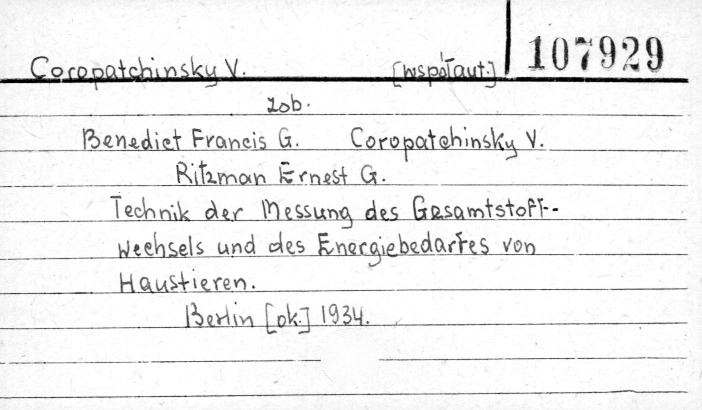 Coropatchinsky V. [współaut.] 107929
zob.
Benedict Francis G. Coropatchinsky V.
Ritzman Ernest G.
Technik der Messung des Gesamtstoff-
wechsels und des Energiebedarfes von
Haustieren.
Berlin [ok.] 1934.